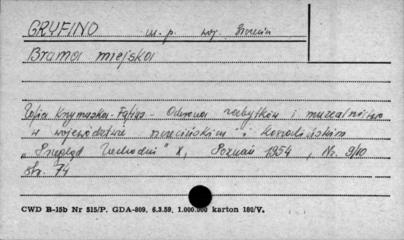 GRYFINO m. p. woj. Szczecin
Brama miejska
Zofia Krzymuska-Fafius - Odnowa zabytków i muzealnictwo
w województwie szczecińskim i koszalińskim
"Przegląd Zachodni" X, Poznań 1954, Nr. 9/10
str. 74
CWD B-15b Nr 515/P. GDA-809, 6.3.59, 1.000.000 karton 180/V.